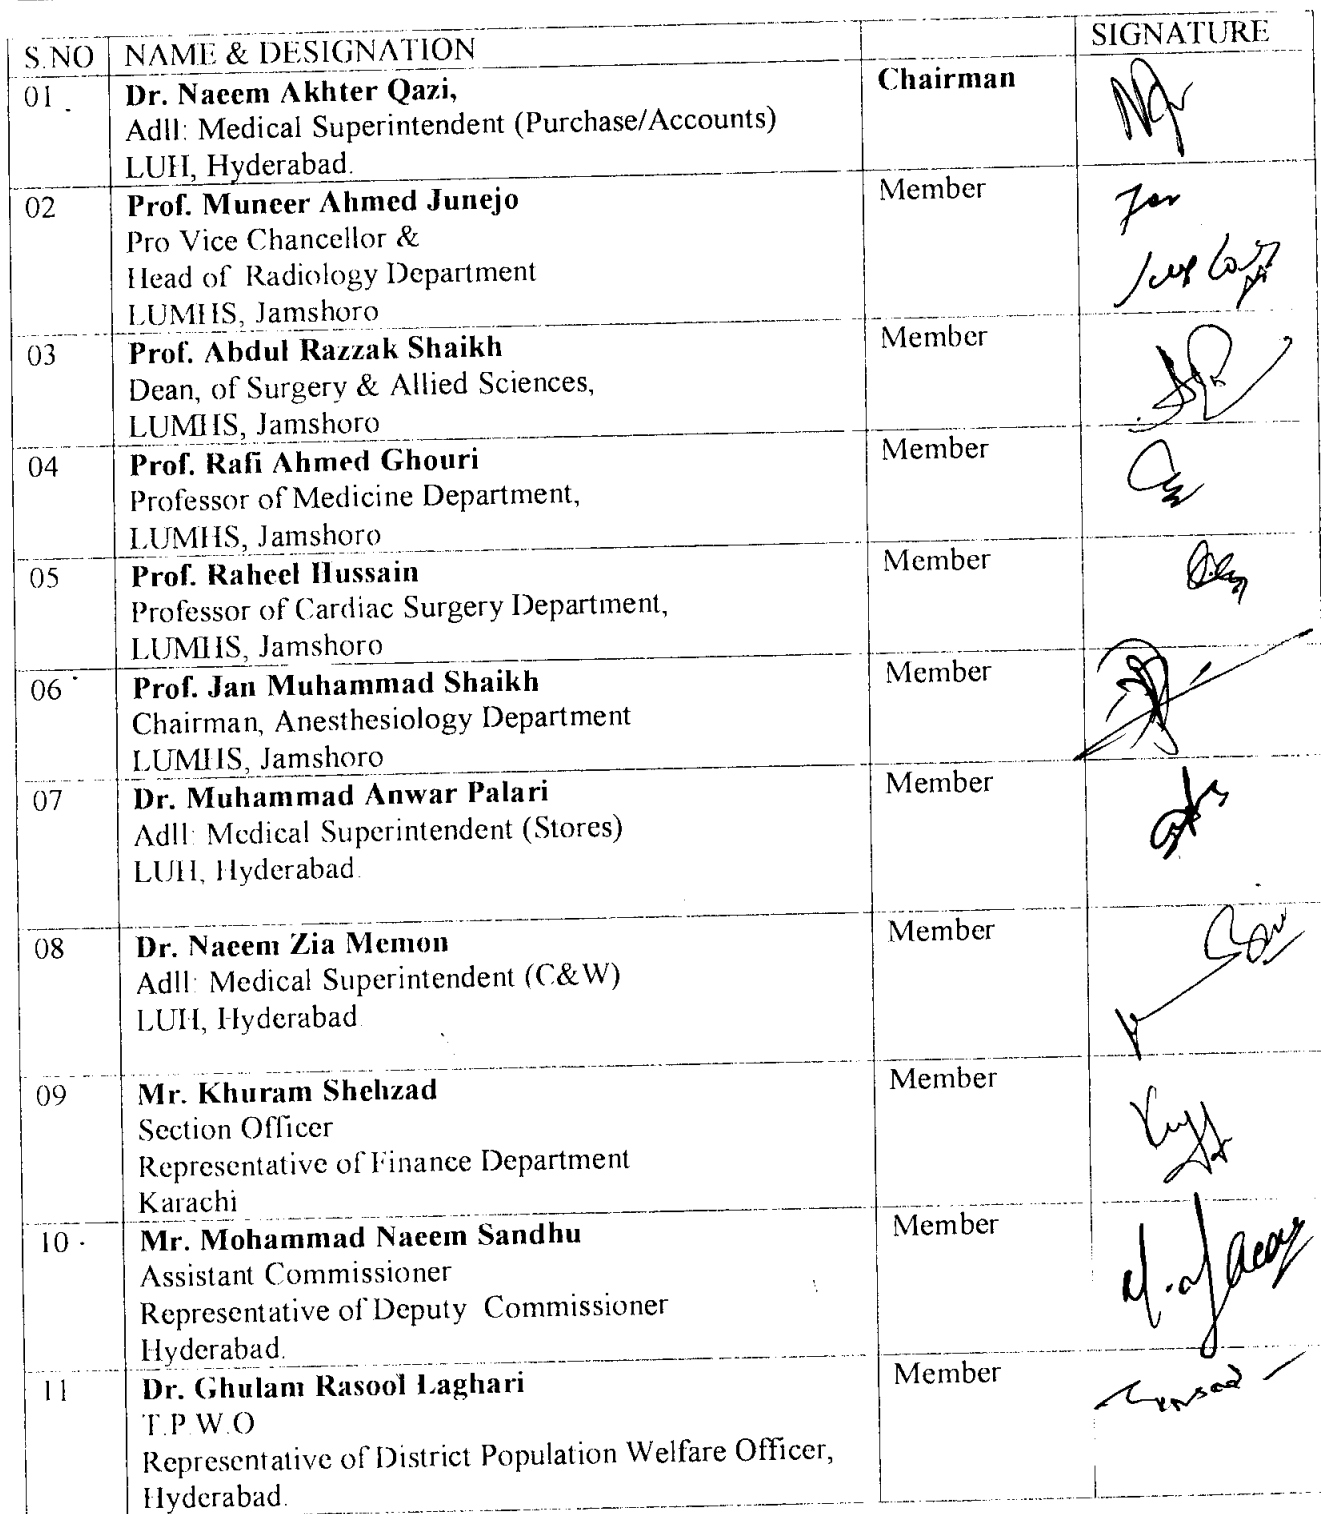 S.NO NAME & DESIGNATION SIGNATURE
01 Dr. Naeem Akhter Qazi, Chairman
Adll: Medical Superintendent (Purchase/Accounts)
LUH, Hyderabad.
02 Prof. Muneer Ahmed Junejo Member
Pro Vice Chancellor &
Head of Radiology Department
LUMHS, Jamshoro
03 Prof. Abdul Razzak Shaikh Member
Dean, of Surgery & Allied Sciences,
LUMHS, Jamshoro
04 Prof. Rafi Ahmed Ghouri Member
Professor of Medicine Department,
LUMHS, Jamshoro
05 Prof. Raheel Hussain Member
Professor of Cardiac Surgery Department,
LUMHS, Jamshoro
06 Prof. Jan Muhammad Shaikh Member
Chairman, Anesthesiology Department
LUMHS, Jamshoro
07 Dr. Muhammad Anwar Palari Member
Adll: Medical Superintendent (Stores)
LUH, Hyderabad.
08 Dr. Naeem Zia Memon Member
Adll: Medical Superintendent (C&W)
LUH, Hyderabad.
09 Mr. Khuram Shehzad Member
Section Officer
Representative of Finance Department
Karachi
10 Mr. Mohammad Naeem Sandhu Member
Assistant Commissioner
Representative of Deputy Commissioner
Hyderabad.
11 Dr. Ghulam Rasool Laghari Member
T.P.W.O
Representative of District Population Welfare Officer,
Hyderabad.